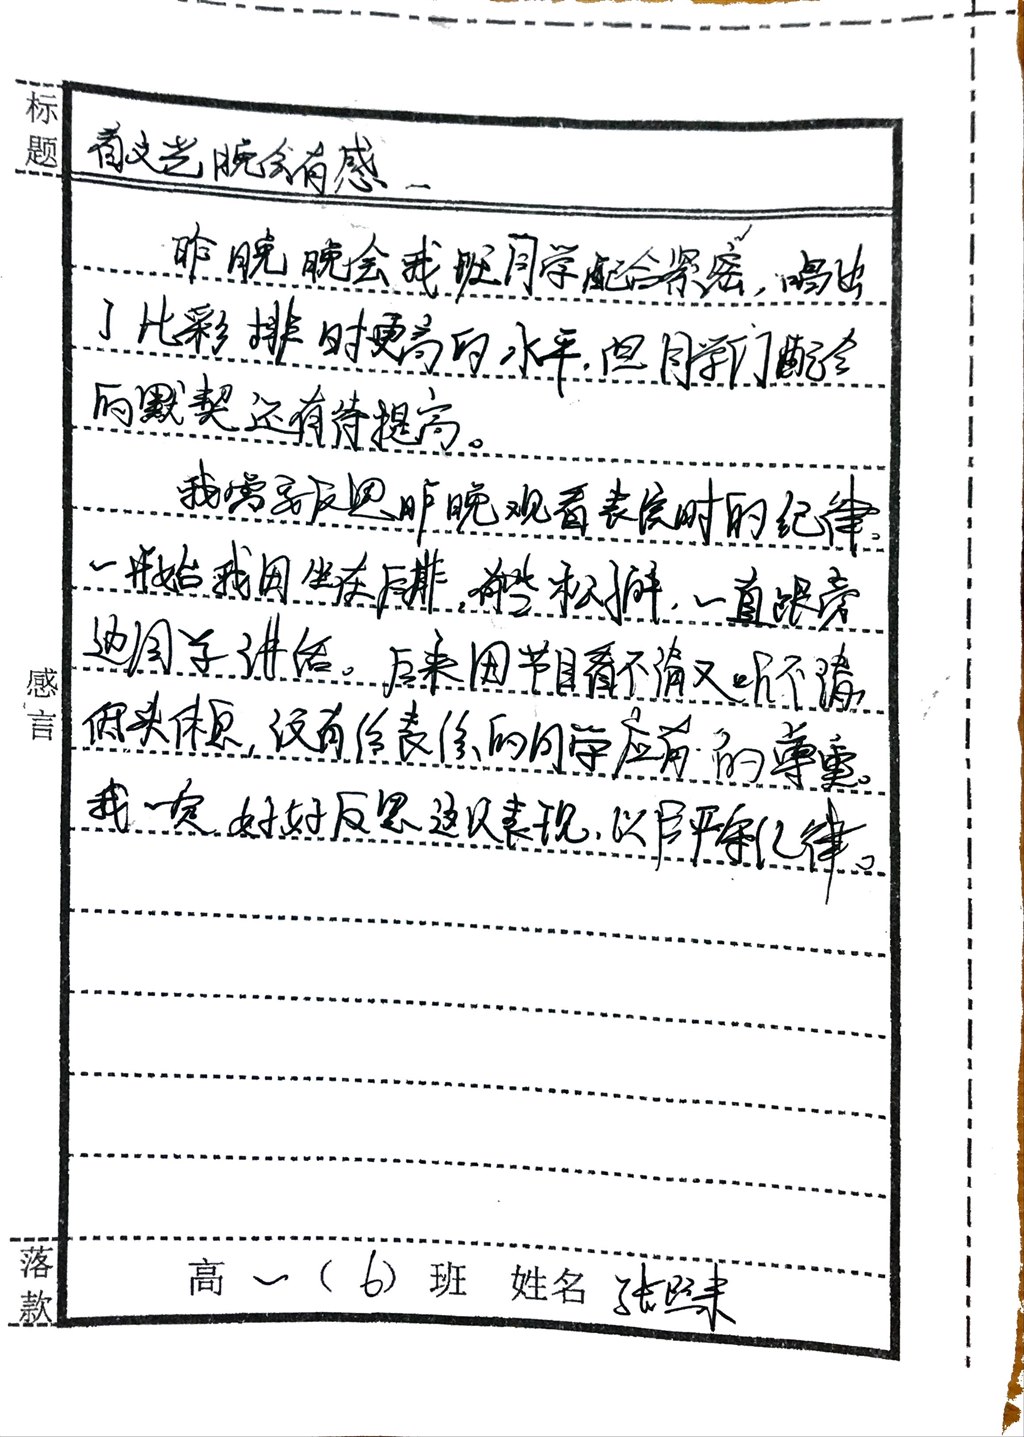 标题
看文艺晚会有感
昨晚晚会我班同学配合紧密,唱出
了比彩排时更高的水平.但同学门配合
的默契还有待提高。
我需要反思昨晚观看表演时的纪律。
一开始我因坐在后排,有些松懈,一直跟旁
边同学讲话。后来因节目看不清又听不清,
低头休息,没有给表演的同学应有的尊重。
我一定好好反思这次表现,以后严守纪律。
感言
落款
高一(6)班 姓名 张熙来